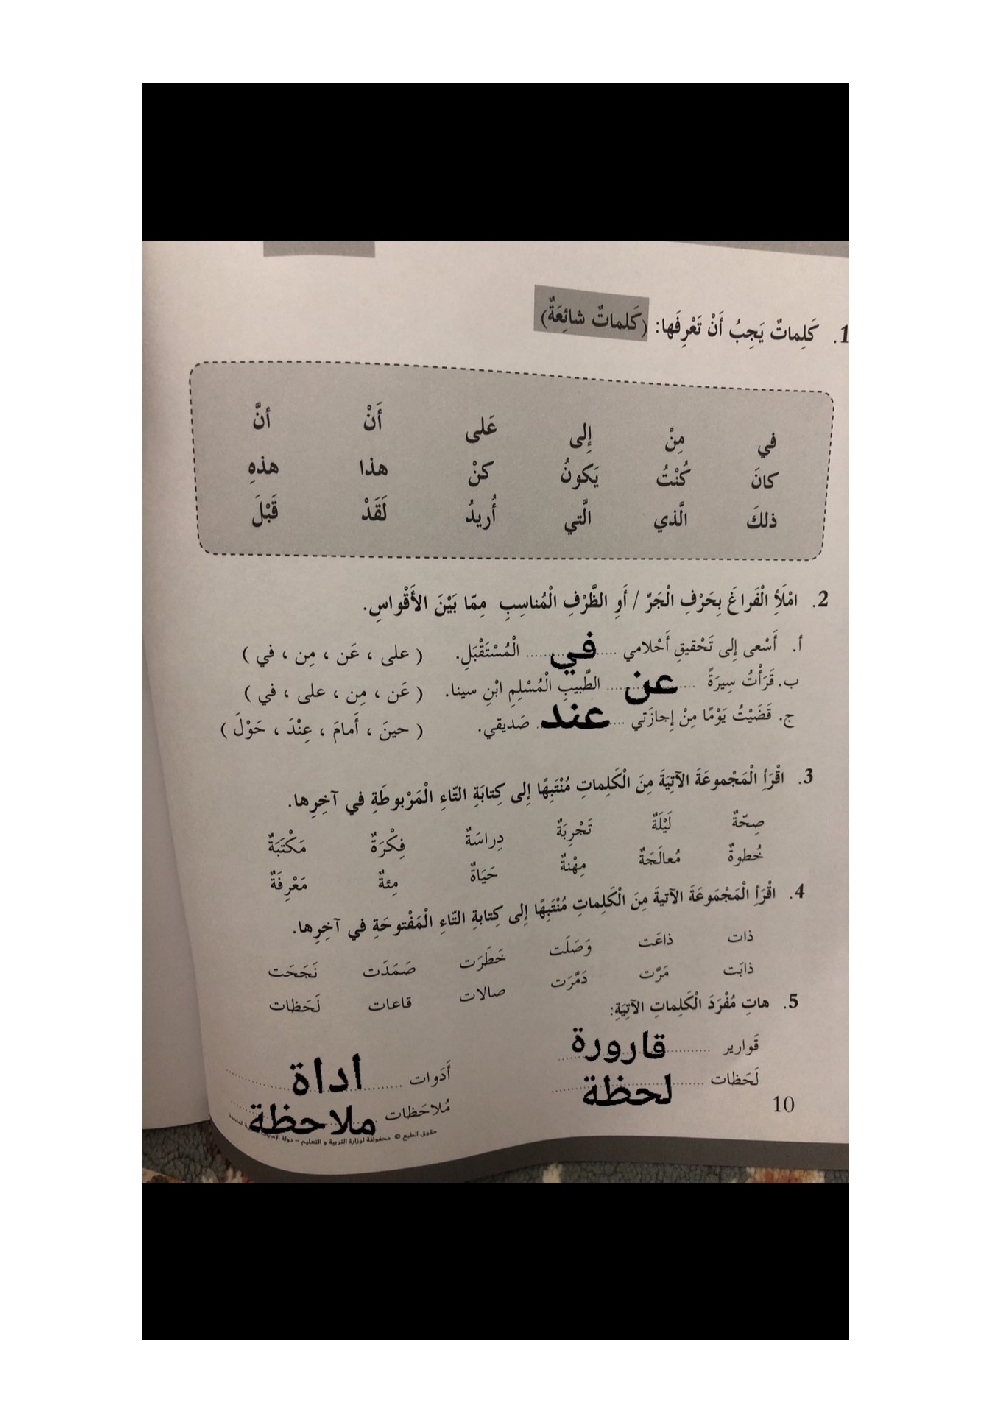 1. كَلِماتٌ يَجِبُ أَنْ تَعْرِفَها: (كَلماتٌ شائِعَةٌ)
في مِنْ إِلى عَلى أَنْ أنَّ
كانَ كُنْتُ يَكونُ كنْ هذا هذهِ
ذلكَ الَّذي الَّتي أُريدُ لَقَدْ قَبْلَ
2. امْلَأِ الْفَراغَ بِحَرْفِ الْجَرِّ / أَوِ الظَّرْفِ الْمُناسِبِ مِمّا بَيْنَ الأَقْواسِ.
أ. أَسْعى إِلى تَحْقيقِ أَحْلامي في الْمُسْتَقْبَلِ. ( على ، عَن ، مِن ، في )
ب. قَرَأْتُ سِيرَةً عن الطَّبيبِ الْمُسْلِمِ ابْنِ سينا. ( عَن ، مِن ، على ، في )
ج. قَضَيْتُ يَوْمًا مِنْ إِجازَتي عند صَديقي. ( حينَ ، أَمامَ ، عِنْدَ ، حَوْلَ )
3. اقْرَأِ الْمَجْموعَةَ الآتِيَةَ مِنَ الْكَلِماتِ مُنْتَبِهًا إِلى كِتابَةِ التّاءِ الْمَرْبوطَةِ في آخِرِها.
صِحّةٌ لَيْلَةٌ تَجْرِبَةٌ دِراسَةٌ فِكْرَةٌ مَكْتَبَةٌ
خُطوةٌ مُعالَجَةٌ مِهْنةٌ حَيَاةٌ مِئةٌ مَعْرِفَةٌ
4. اقْرَأِ الْمَجْمُوعَةَ الآتيةَ مِنَ الْكَلِماتِ مُنْتَبِهًا إِلى كِتابةِ التّاءِ الْمَفْتوحَةِ في آخِرِها.
ذات ذاعَت وَصَلَت خَطَرَت صَمَدَت نَجَحَت
ذابَت مَرَّت دَمَّرَت صالات قاعات لَحَظات
5. هاتِ مُفْرَدَ الْكَلِماتِ الآتِيَةِ:
قَوارير قارورة أَدَوات أداة
لَحَظات لحظة مُلاحَظات ملاحظة
10
حقوق الطبع © محفوظة لوزارة التربية و التعليم - دولة